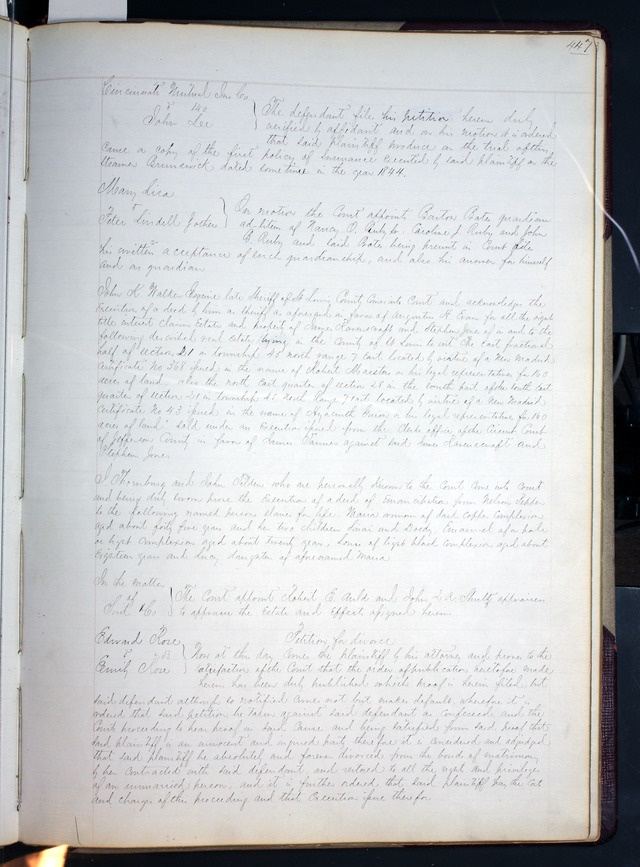 447
Cincinnati Mutual Ins Co
v 140
John Lee
The defendant files his petition herein duly
verified by affidavit and on his motion it is ordered
that said plaintiff produce on the trial of this
cause a copy of the first policy of insurance executed by said plaintiff on the
Steamer Brunswick dated sometime in the year 1844.
Mary Lisa
v
Peter Lindell & others
On motion the Court appoints Barton Bates guardian
ad litem of Nancy O. Ruby Caroline J Ruby and John
G Ruby and said Bates being present in Court
his written acceptance of such guardianship, and also his answer for himself
and as guardian
John H. Walker Esquire late Sheriff of St Louis County comes into Court and acknowledges the
Execution of a deed by him as sheriff as aforesaid in favor of Augustus H Evans for all the right
title interest claim Estate and property of James Ravenscraft and Stephen Jones of in and to the
following described real estate lying in the County of St Louis to wit the east fractional
half of section 21 in township 45 north range 7 east located by virtue of a New Madrid
Certificate No issued in the name of Robert or his legal representatives for 160
acres of land also the north east quarter of section 28 in the south east
quarter of section 21 in township 45 North Range 7 east located by virtue of a New Madrid
Certificate No 43 issued in the name of Hyacinth or his legal representatives for 160
acres of land; sold under an Execution issued from the Clerks office of the Circuit Court
of Jefferson County in favor of Tanner against said James Ravenscraft and
Stephen Jones.
Thornburg and John who are personally known to the Court come into Court
and being duly sworn prove the execution of a deed of Emancipation from Nelson
to the following named person slaves for life. Maria woman of dark copper complexion
aged about forty five years and her two children and
or light complexion aged about twenty years, Louisa of light black complexion aged about
Eighteen years and Lucy daughter of aforenamed Maria
In the matter
of
&C
The Court appoints Robert E. and John appraisers
to appraise the Estate and Effects assigned herein
Edward Rose
v
Emily Rose
Petition for divorce
Now at this day comes the plaintiff by his attorney and proves to the
satisfaction of the Court that the order of publication heretofore made
herein has been duly published which proof is herein filed but
said defendant although so notified comes not but makes default, wherefore it is
ordered that said petition be taken against said defendant as confessed, and the
Court proceeding to hear proof in said cause and being satisfied from said proof that
said plaintiff is an innocent and injured party therefore it is considered and adjudged
that said plaintiff be absolutely and forever divorced from the bonds of matrimony
by her contracted with said defendant, and restored to all the rights and privileges
of an unmarried person, and it is further ordered that said plaintiff pay the costs
and charges of this proceeding and that Execution issue therefor